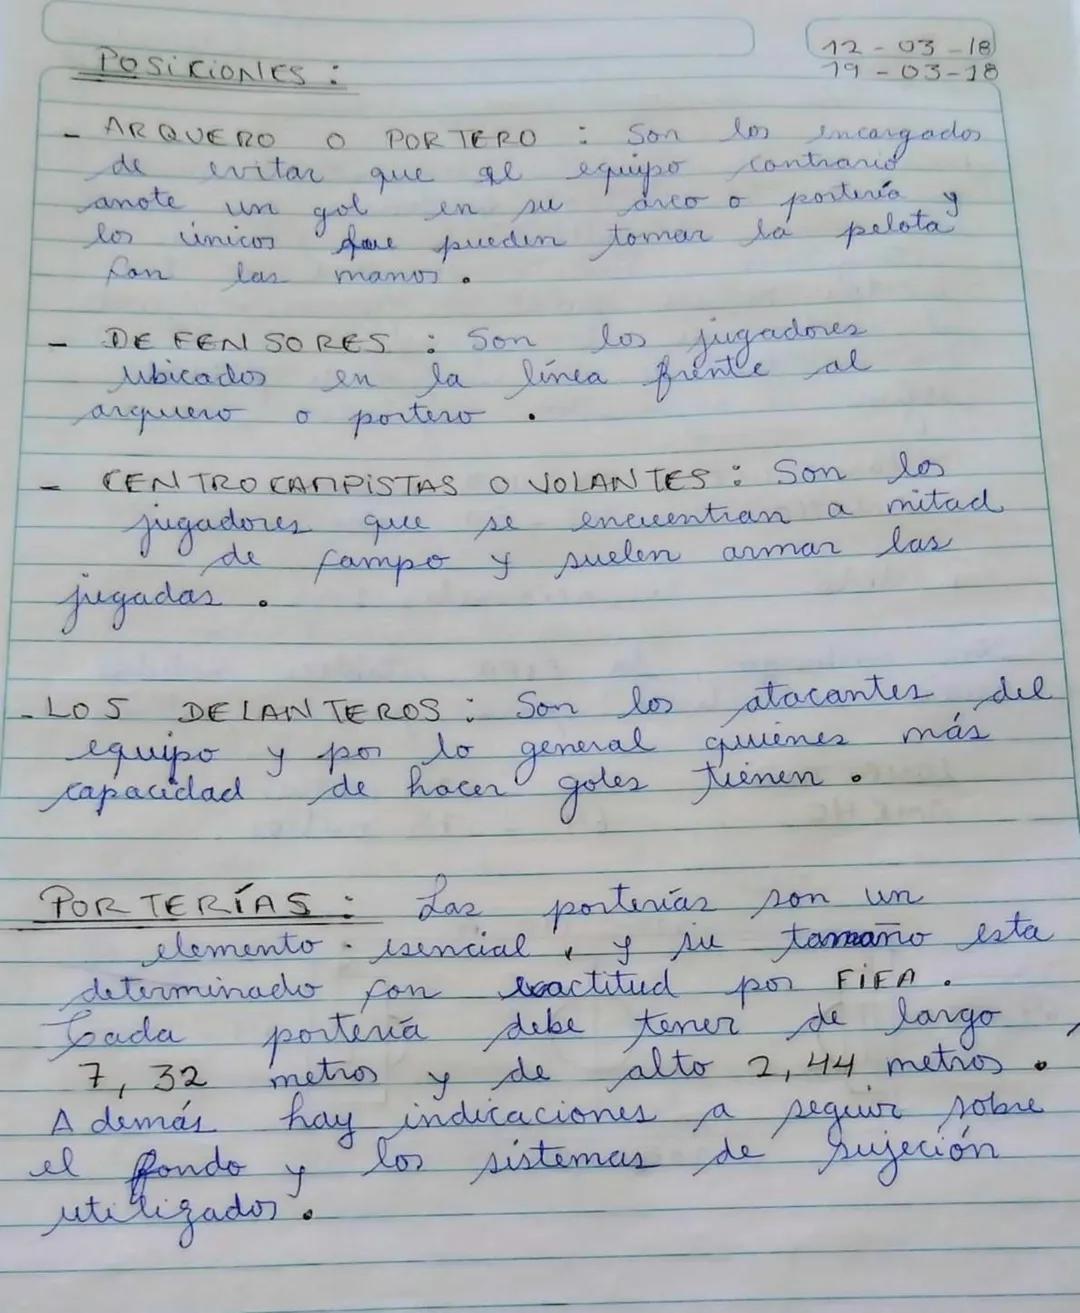 12-03-18
POSICIONES :
19-03-18
- ARQUERO O PORTERO : Son los encargados
de evitar que el equipo contrario
anote un gol en su arco o portería y
los únicos que pueden tomar la pelota
con las manos.
- DEFENSORES : Son los jugadores
ubicados en la línea frente al
arquero o portero.
- CENTROCAMPISTAS O VOLANTES : Son los
jugadores que se encuentran a mitad
de campo y suelen armar las
jugadas.
- LOS DELANTEROS : Son los atacantes del
equipo y por lo general quienes más
capacidad de hacer goles tienen.
PORTERÍAS : Las porterías son un
elemento esencial, y su tamaño esta
determinado con exactitud por FIFA.
Cada portería debe tener de largo
7,32 metros y de alto 2,44 metros.
Además hay indicaciones a seguir sobre
el fondo y los sistemas de sujeción
utilizados.